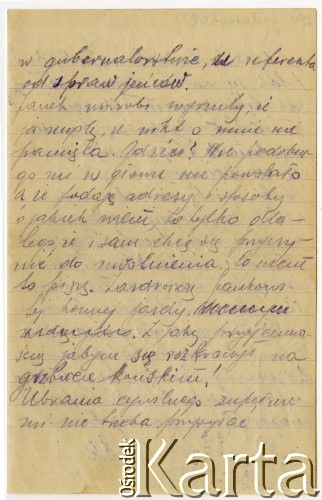 w gubernatorstwie, u referenta
od spraw jeńców.
Janek mi robi wyrzuty, że
ja myślę, że nikt o mnie nie
pamięta. Gdzież! Nic podobne-
go mi w głowie nie powstało
a że podaję adresy i sposoby
o jakich wiem, to tylko dla-
tego że i sam chcę się przyczy-
nić do uwolnienia, co wiem
to piszę. Zazdroszczę Jankowi
tej konnej jazdy,
Z jaką przyjemno-
ścią jabym się rozbrajał na
grzbiecie końskim!
Ubrania cywilnego zupełnie
mi nie trzeba przysyłać
Ośrodek
Karta